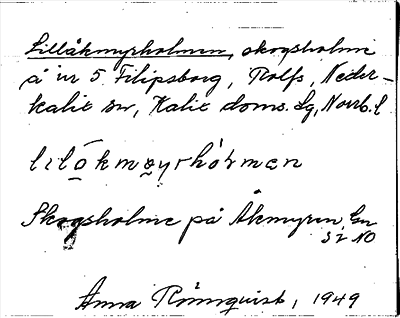 Lillåkmyrholmen, skogsholme
å nr 5 Filipsborg, Rolfs, Neder-
kalix sn, Kalix doms. lg, Norrb. l
lilåkmyrhólmen
Skogsholme på Åkmyren,
Anna Rönnquist, 1949